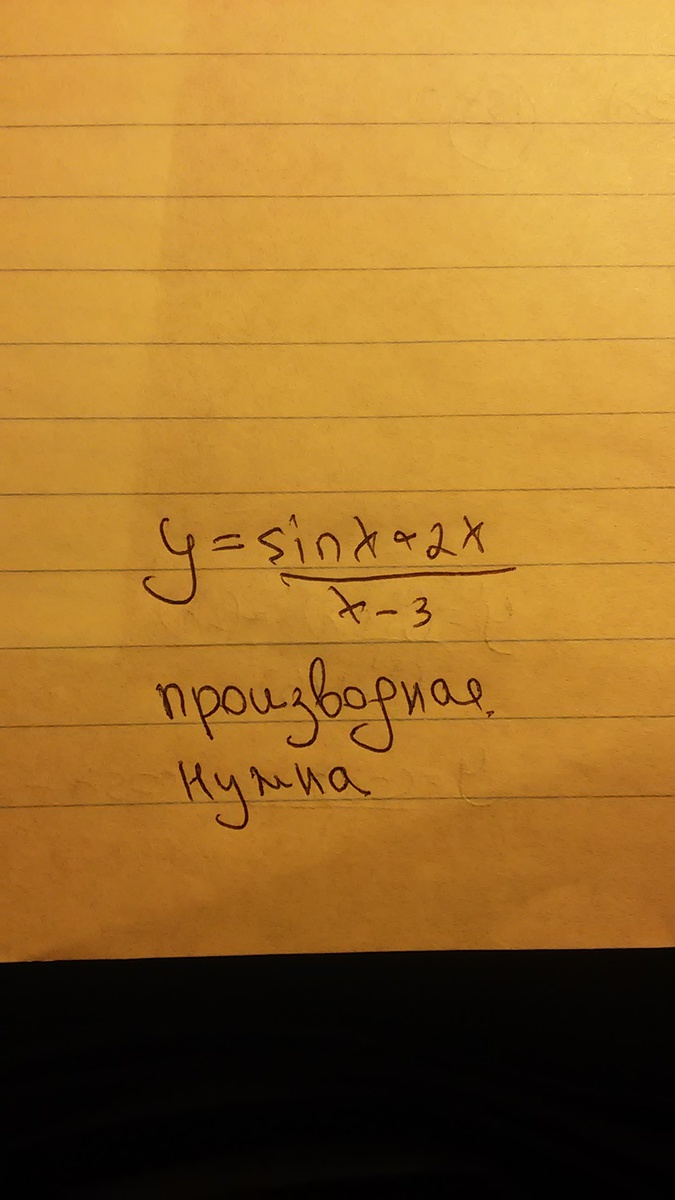 y = sinx+2x
x-3
производная.
нужна